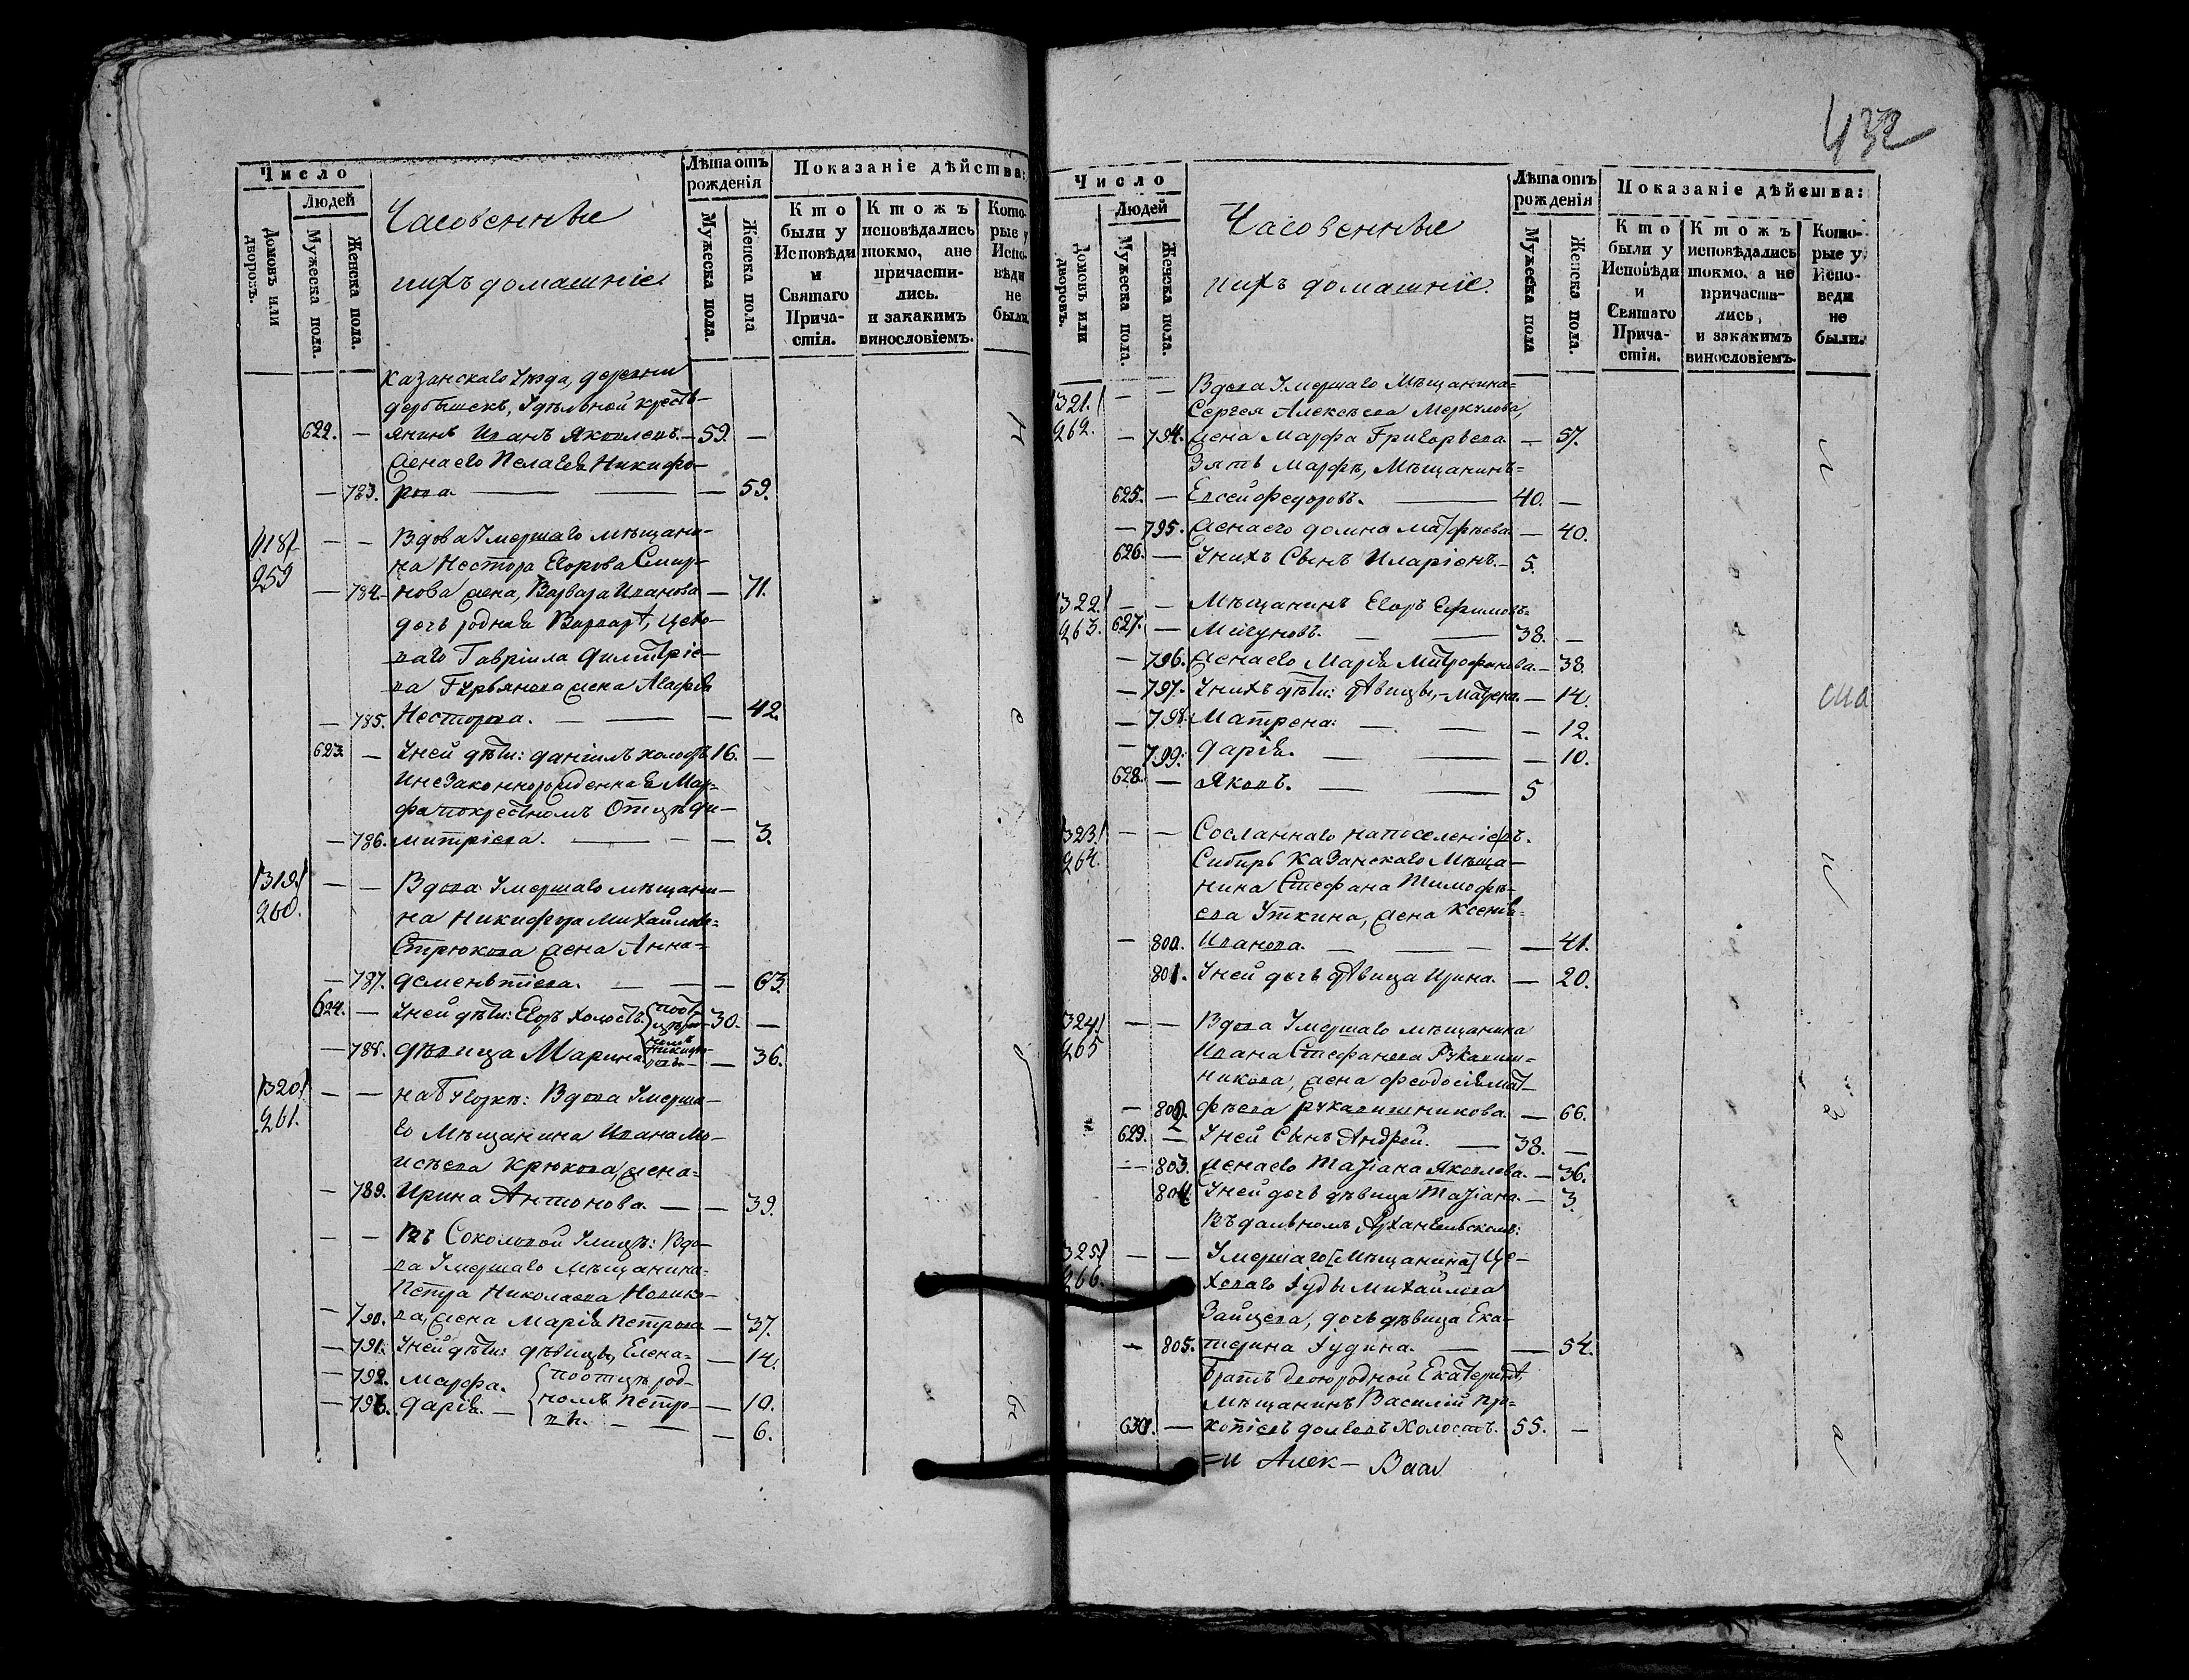 432
Число
Людей
Домовъ или дворовъ.
Мужеска пола.
Женска пола.
Часовенные
ихъ домашніе.
Лѣта отъ рожденія
Мужеска пола.
Женска пола
Показаніе дѣйства:
Кто были у Исповѣди и Святаго Причастія.
Ктожъ исповѣдались токмо, ане причастились. и закакимъ винословіемъ.
Которые у Исповѣди не были.
Казанскаго Уѣзда, деревни
дербышекъ, Удѣльной крестъ-
622. — янинъ Иванъ Яковлевъ. — 59. —
жена его Пелагея Никифо-
— 783. рова — — — 59.
1318/ — — Вдова Умершаго мѣщани-
259 на Нестора Егорова Смир-
— 784. нова жена, Варвара Иванова — 71.
дочь родная Варварѣ, цехо-
ваго Гавріила Димитріе-
ва Гурьянова жена Агафія
— 785. Несторова. — — — 42.
623. — Уней дѣти: Даніилъ холостъ 16. —
Инезаконнорожденная Мар-
фа покрестномъ Отцѣ Ди-
— 786. митріева. — — — 3.
1319/ — — Вдова Умершаго мѣщани-
260. на Никифора Михайлова=
Стрюкова жена Анна=
— 787. дементіева. — — — 63.
624. — Уней дѣти: Егоръ Холостъ. — 30. —
— 788. дѣвица Марина — 36.
1320/ — — на Бугоркѣ: Вдова Умерша-
261. го Мѣщанина Ивана Мо-
исѣева Крюкова, жена=
— 789. Ирина Антонова. — — 39.
— — Въ Соколовой Улицѣ: Вдо-
ва Умершаго Мѣщанина=
Петра Николаева Новико-
— 790. ва, жена Марія Петрова — 37.
— 791. Уней дѣти: дѣвицы, Елена= — 14.
— 792. Марфа. { поотцѣ род- — 10.
— 793. Дарія. — номъ Петро-
вы. — — — 6.
Число
Людей
Домовъ или дворовъ.
Мужеска пола.
Женска пола.
Часовенные
ихъ домашніе.
Лѣта отъ рожденія
Мужеска пола
Женска пола.
Показаніе дѣйства:
Кто были у Исповѣди и Святаго Причастія.
Ктожъ исповѣдались токмо, а не причастились, и закакимъ винословіемъ.
Которые у Исповеди не были.
1321./ — — Вдова Умершаго Мѣщанина=
262. Сергея Алексѣева Меркулова,
— 794. жена Марфа Григорьева — 57.
Зять Марфѣ, Мѣщанинъ=
625. — Евсей Федоровъ. — 40. —
— 795. жена его Домна Матфѣева — 40.
626. — Унихъ Сынъ Иларіонъ. — 5.
1322/ — — Мѣщанинъ Егоръ Ефимовъ=
263. 627. — Мигуновъ. — — 38. —
— 796. жена его Марія Митрофанова. — 38.
— 797. Унихъ дѣти: дѣвицы, — — 14.
— 798. Матрена. — — — 12.
— 799. Дарія. — — — 10.
628. — Яковъ. — — 5
1323/ — — Сосланнаго напоселеніе въ.
264. Сибирь Казанскаго Мѣща-
нина Стефана Тимофѣ-
ева Уткина, жена Ксенія=
— 800. Иванова. — — — 41.
801. Уней дочь дѣвица Ирина. — 20.
1324/ — — Вдова Умершаго мѣщанина
265 Ивана Стефанова Рукавиш=
никова, жена Феодосія Мат-
— 802. фѣева рукавишникова. — 66.
629. — Уней Сынъ Андрей. — 38. —
— 803. жена его Татіана Яковлева. — 36.
804. Уней дочь дѣвица Татіана. — 3.
Въ дальномъ Архангельскомъ:
1325/ — — Умершаго [Мѣщанина] Це-
266. ховаго Іуды Михайлова
Зайцева, дочь дѣвица Ека-
— 805. терина Іудина. — — 54.
Братъ двоюродной Екатеринѣ,
Мѣщанинъ Василій Про=
630. — копіевъ Холостъ. 55. —
=и Алек —